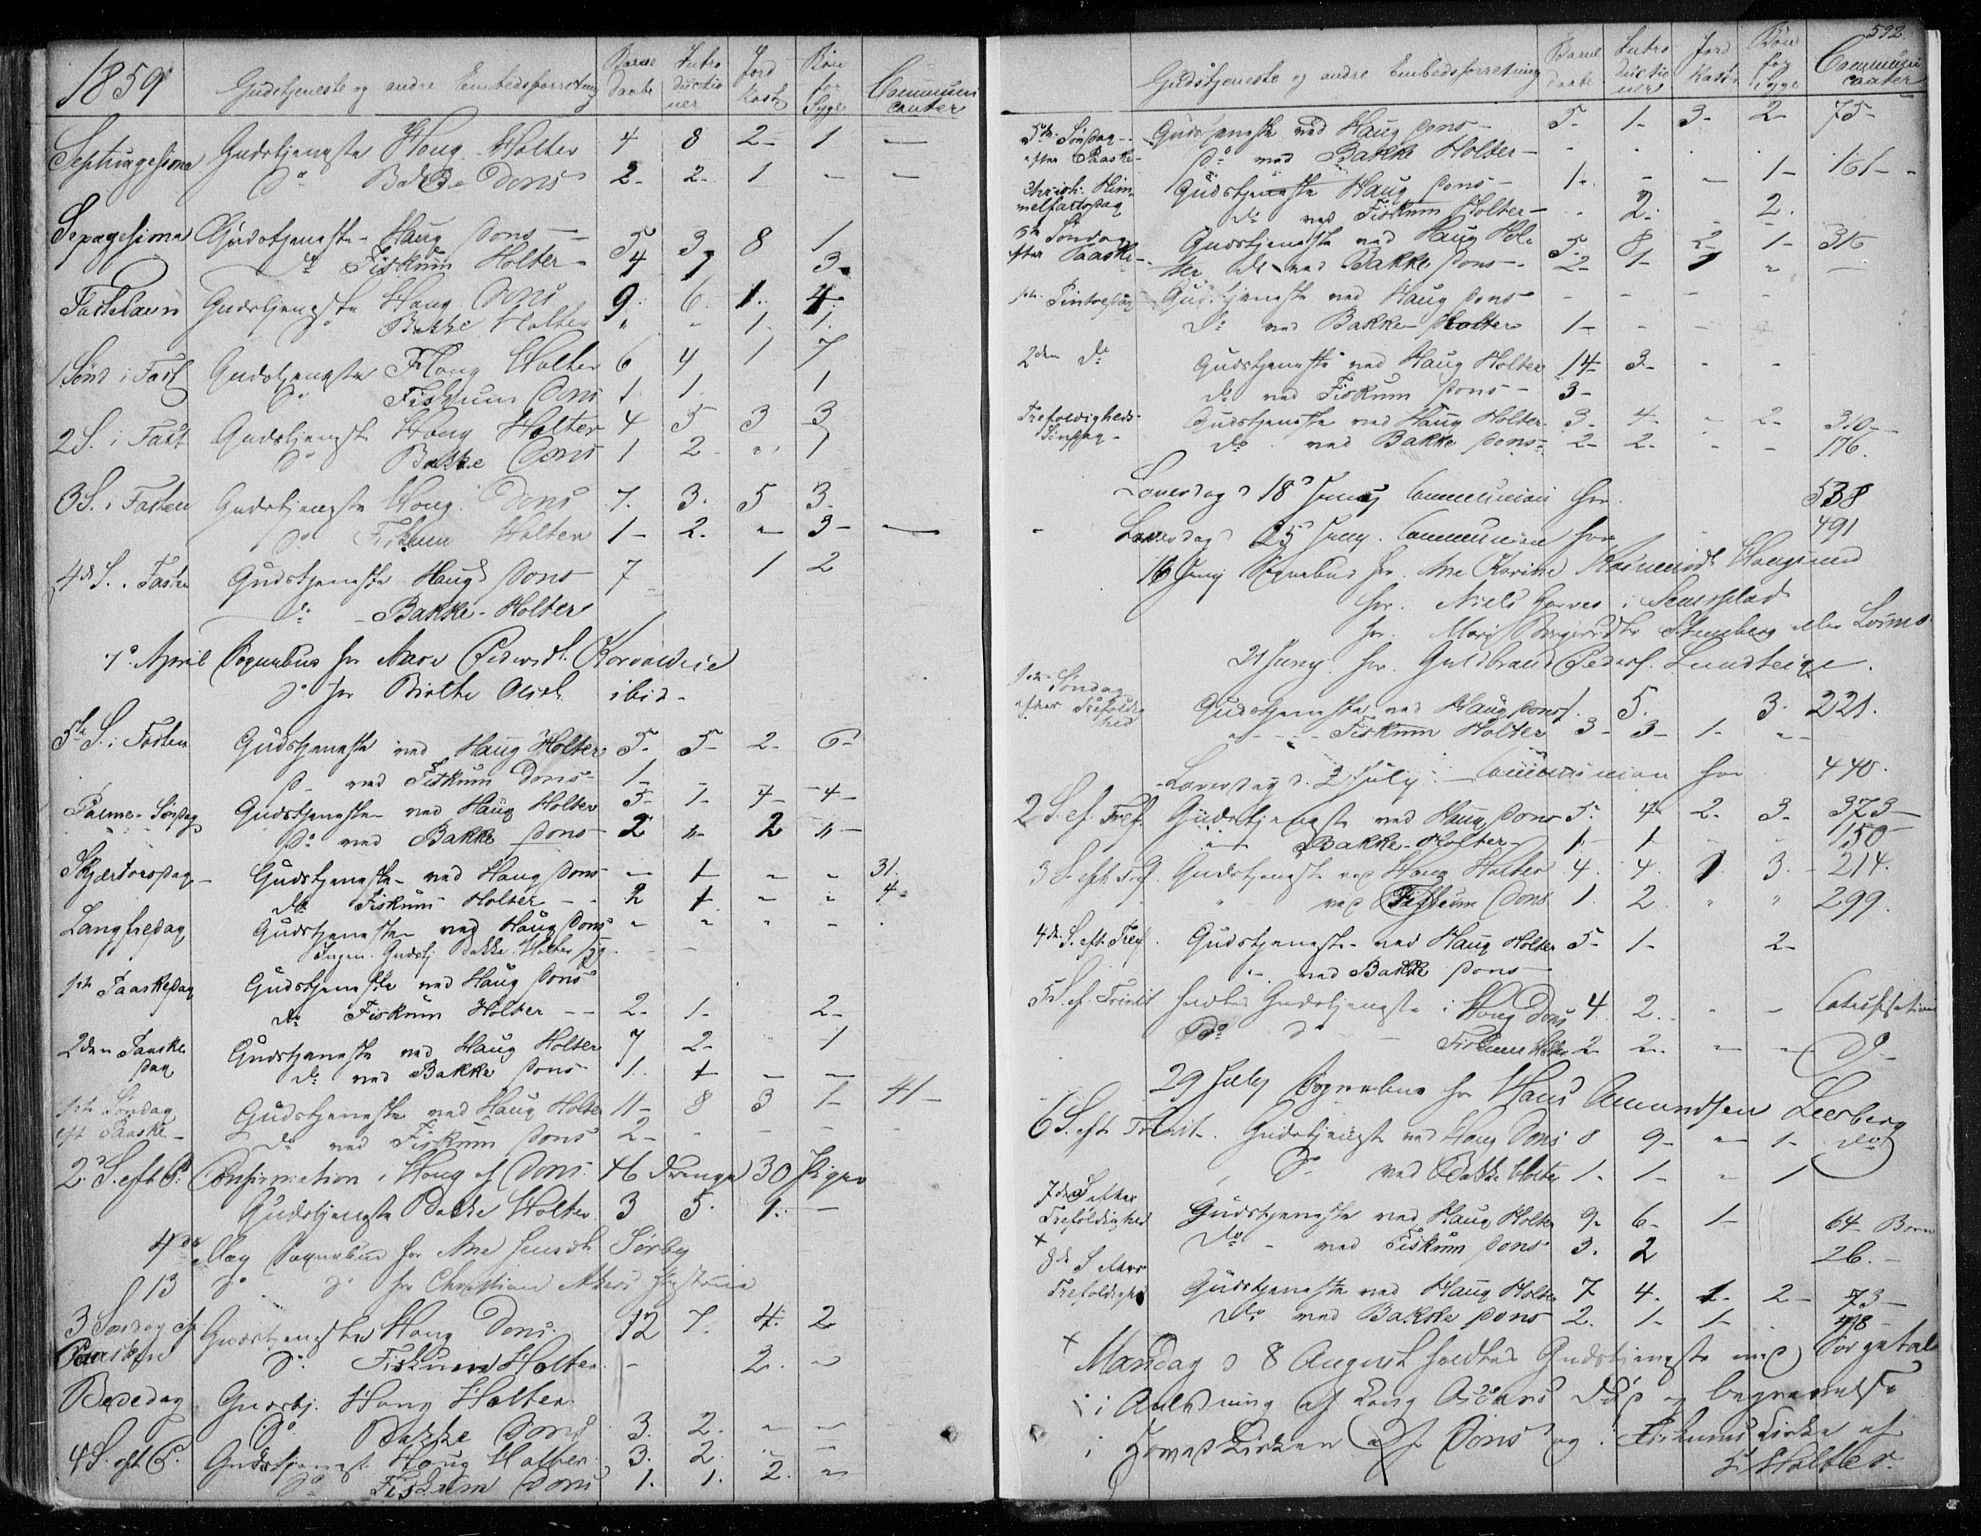 1859
Gudstjeneste og andre Embedsforretning
Barne Daabe
Intro ductio ner
Jord Kast
Bøn for Syge
Communi canter
Septuagesima Gudstjeneste Haug Holter 4 8 2 1 —
Do Bakke Døns 2 2 1 — —
Sexagesima Gudstjeneste Haug Døns 5 3 8 1
Do Fiskum Holter 4 1 3
Fastelavn Gudstjeneste Haug Døns 9 6 1 4
Do Bakke Holter " - 1 1
1 Sønd i Fast Gudstjeneste Haug Holter 6 4 1 7
Do Fiskum Døns 1 1 1
2 S. i Fast Gudstjeneste Haug Holter 4 5 3 3
Do Bakke Døns 1 2 " 1
3 S. i Fasten Gudstjeneste Haug Døns 7. 3. 5 3
Do Fiskum Holter 1 2 - 3 —
4de S. i Fasten Gudstjeneste Haug Døns 7 1 2
Do Bakke Holter
7de April Sognebud for Anne Pedersdt.
Do for Birthe Olsdt. ibid.
5te S. i Fasten Gudstjeneste ved Haug Holter 5 5 2 6
Do ved Fiskum Døns 1
Palme-Søndag Gudstjeneste ved Haug Holter 5 1 4 4
Do ved Bakke Døns 2 " 2 "
Skjærtorsdag Gudstjeneste ved Haug Døns - 1 " " 31.
Do Fiskum Holter 2 1 - - 4
Langfredag Gudstjeneste ved Haug Døns " " " "
Ingen Gudstj. Bakke. Holter syg
1ste Paaskedag Gudstjeneste ved Haug Døns
Do Fiskum Holter 2 1 2
2den Paaske dag Gudstjeneste ved Haug Holter 7 2 1
Do ved Bakke Døns 1 1 — —
1ste Søndag eft Paaske Gudstjeneste ved Haug Holter 11 8 3 1 41
Do ved Fiskum Døns 2
2 S. eft P. Confirmation i Haug af Døns. 46 Drenge 30 Piger
Gudstjeneste Bakke Holter 3 5 1 —
4de May Sognebud for Ane Jensdt. Sørby
13 Do Do for Christian
3 Søndag ef Paasken Gudstjeneste Haug Døns. 12 7 4 2
Do Fiskum Holter. - 2 "
Bededag Gudstj. Haug Holter
Do Bakke Døns 3. 2. " "
4 S. eft P. Gudstjenest Haug Holter 3. 2. - -
Do Fiskum Døns 1. 1. 2. "
592.
Gudstjeneste og andre Embedsforretning
Barne Daabe
Intro ductio ner
Jord Kast
Bøn for Syge
Communi canter
5te Søndag efter Paaske Gudstjeneste ved Haug Døns 5 1 3 2 75
Do ved Bakke Holter
Christi Him melfartsdag Gudstjeneste Haug Døns 1 - - 1 161
Do ved Fiskum Holter 2 2
6te Søndag efter Paaske Gudstjeneste ved Haug Hol- 5 8 2 1 316
ter Do ved Bakke Døns 2 1 1 " —
1ste Pintsedag Gudstjeneste ved Haug Døns - - - -
Do ved Bakke Holter 1
2den Do Gudstjeneste ved Haug Holter 14 3 - -
Do ved Fiskum Døns 3
Trefoldigheds- Søndag Gudstjeneste ved Haug Holter 3 4 - 2 310
Do ved Bakke Døns 2 2 - - 176.
Løverdag d 18 Juny Communion for 538
Løverdag d 25 Juny. Communion for 491
16 Juny Sognebud for Ane Karine Haugsund
for Niels
for Mari Stenberg eller
21 Juny for Guldbrand Peders. Lundteige.
1ste Søndag efter Trefoldig hed Gudstjeneste ved Haug Døns 1. 5. 3. 221.
Fiskum Holter 3 3 1 "
Løverdag d. 2 July Communion for 440.
2 S. ef. Tref. Gudstjeneste ved Haug Døns 5. 4 2. 3. 373
Bakke Holter 1 1 - - 150
3 S. eft Tref. Gudstjeneste ved Haug Holter 4. 4. 1 3. 214.
ved Fiskum Døns 1. 2. " " 299.
4de S. eft. Tref. Gudstjeneste ved Haug Holter 5 1 2
ved Bakke Døns
5 S. ef. Trinit holdes Gudstjeneste i Haug Døns 4. 2. " - Catechisation
Do Do Fiskum Holter 2 2 - - Do
29 July Sognebud for Hans Amundsen Leerberg
6 S. eft Trinit. Gudstjeneste ved Haug Døns 8 9 " 1 Do
Do ved Bakke Holter 1. 1 " 1
7de S efter Trefoldighed Gudstjeneste ved Haug Holter 9. 6 1 64 Børn
Do ved Fiskum Døns 3. 2 26.
8de S efter Trefoldighed Gudstjeneste ved Haug Holter 7 4. 1. 2 73
Do ved Bakke Døns 2. 1 1 48
Mandag d 8 August holdtes Gudstjeneste med Sørgetale
i Anledning af Kong Oscars Død og begravelse
i Hovedkirken af Døns og i Fiskums Kirke af
Holter.